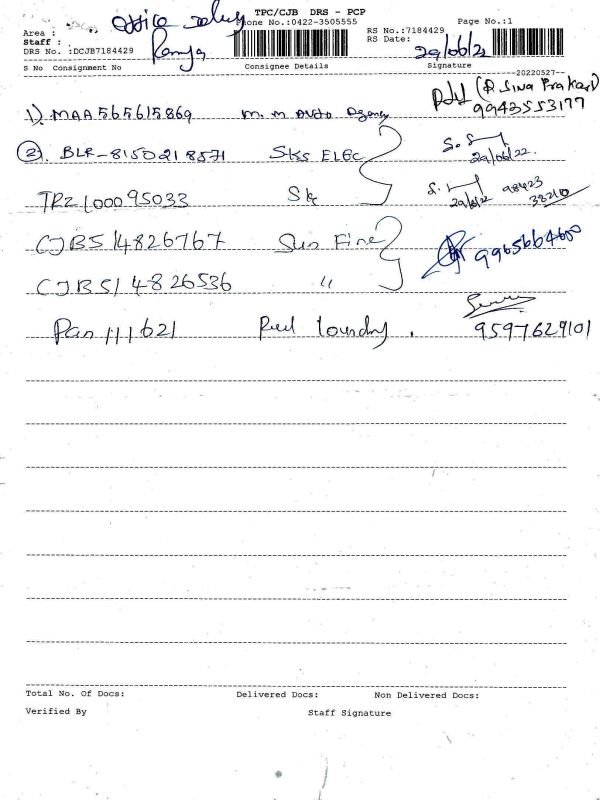 TPC/CJB DRS - PCP
Area : office
Phone No.:0422-3505555
Page No.:1
Staff : Ramya
RS No.:7184429
RS Date: 29/06/22
DRS No. :DCJB7184429
S No Consignment No Consignee Details Signature
--20220527--
1). MAA565615869 M. M Auto Agency (R. Siva Prakash)
9942553177
2. BLR-8150218571 SKS ELEC S. S
29/06/22.
TRZ100095033 Sk S. 29/6/22 98423
38210
CJB514826767 Sun Fine 9965664600
CJB514826536 "
Pan 111621 Reel loundry. 9597629101
Total No. Of Docs: Delivered Docs: Non Delivered Docs:
Verified By Staff Signature